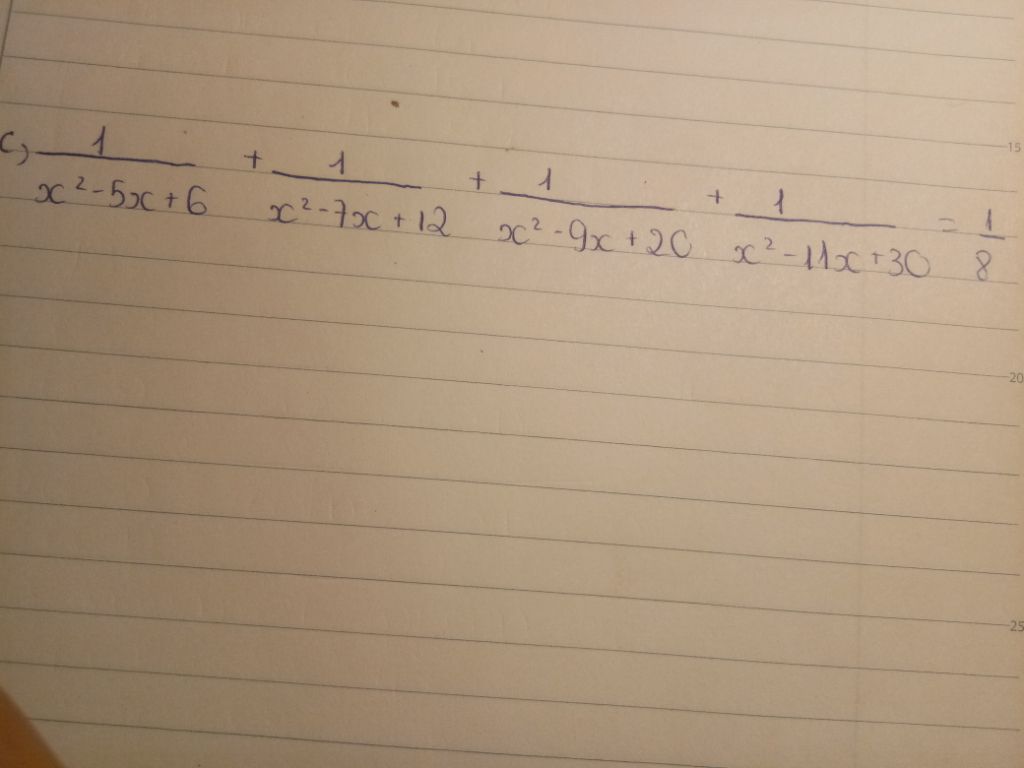 c) 1/(x² - 5x + 6) + 1/(x² - 7x + 12) + 1/(x² - 9x + 20) + 1/(x² - 11x + 30) = 1/8
15
20
25